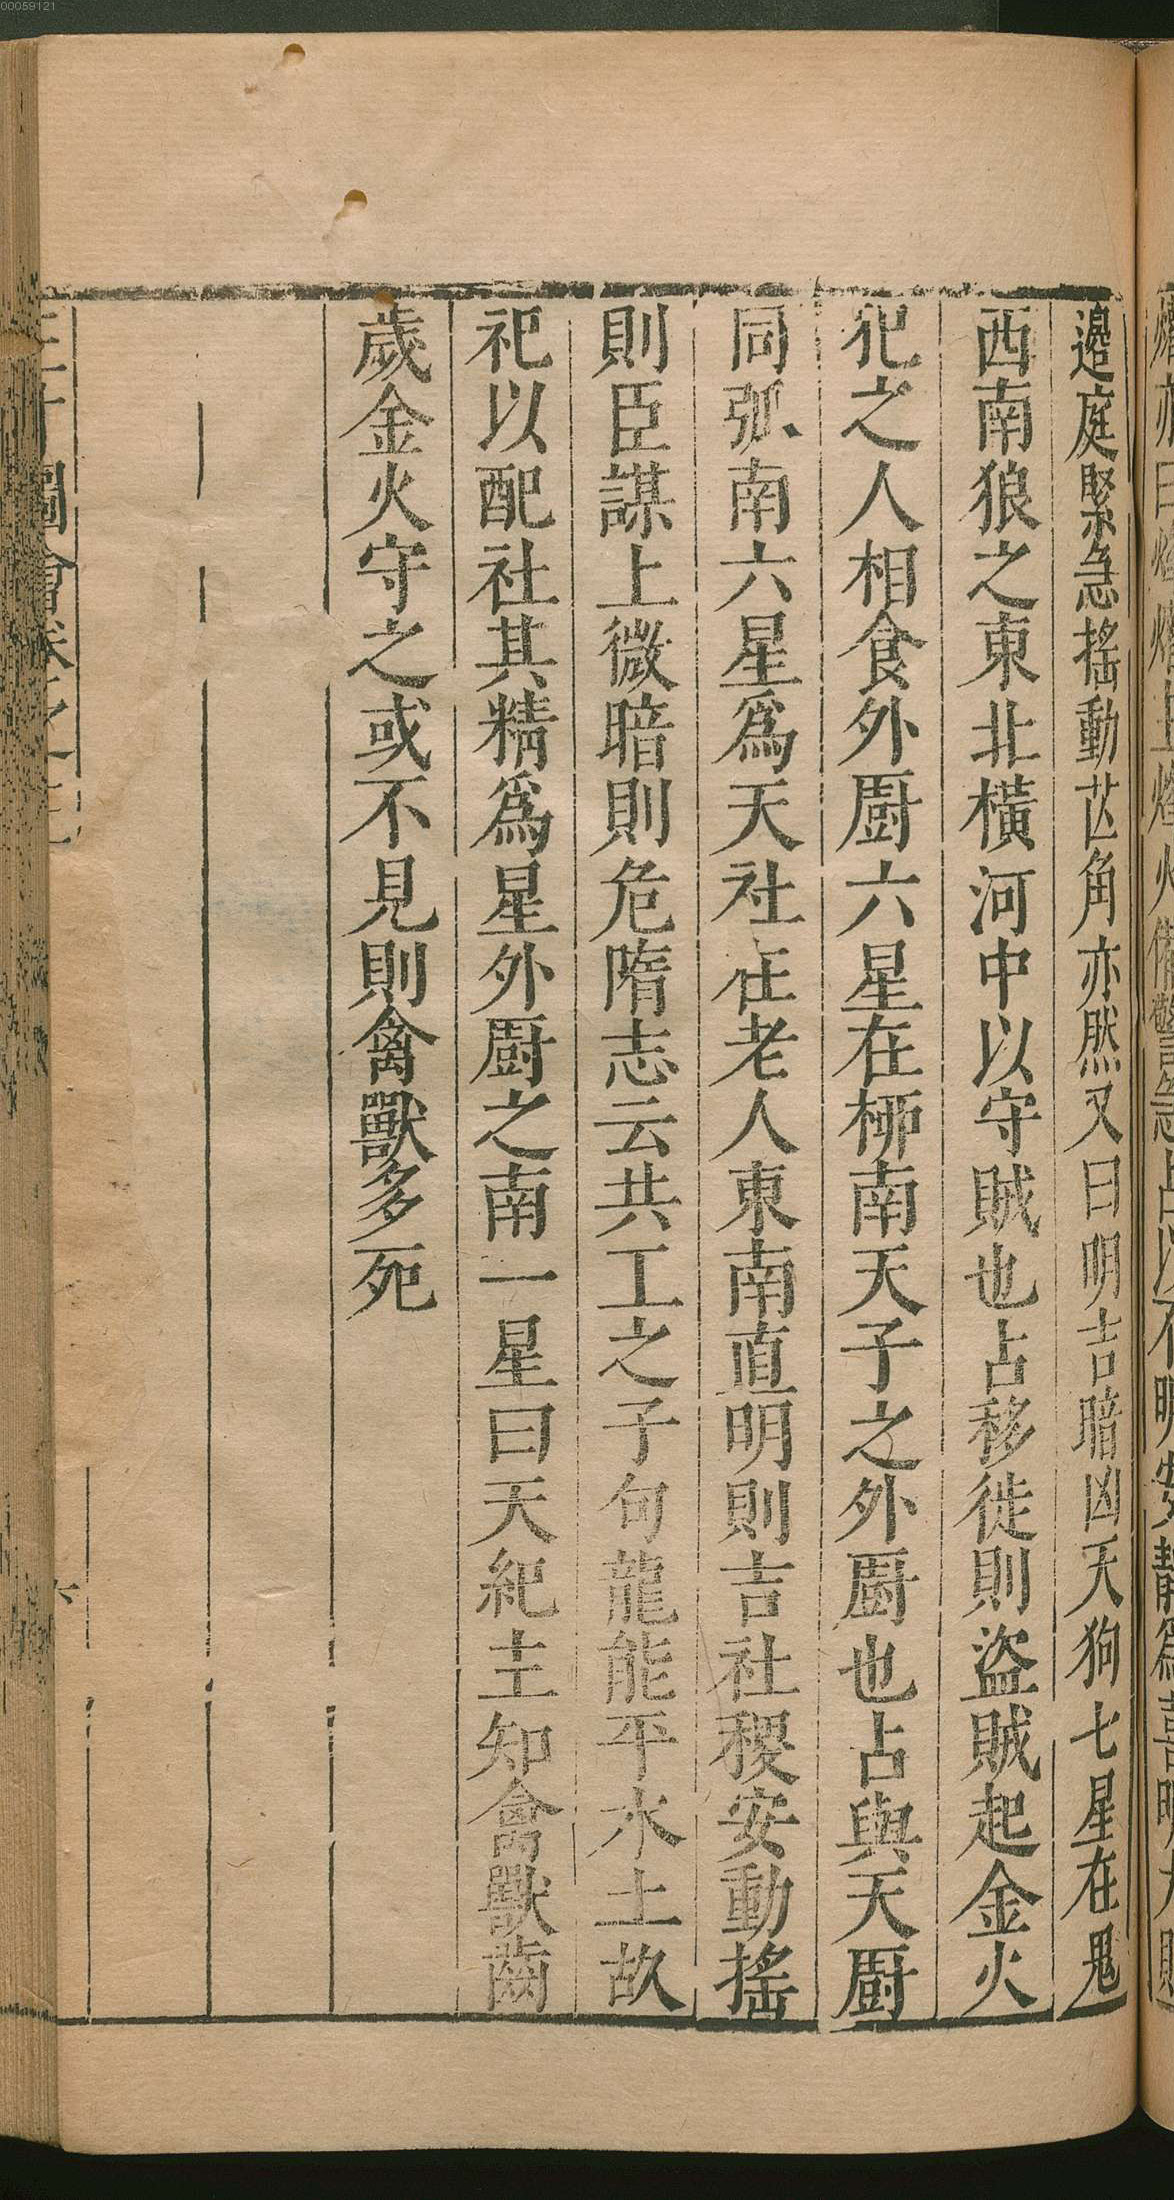 邊庭緊急搖動芒角亦然又曰明吉暗凶天狗七星在鬼
西南狼之東北橫河中以守賊也占移徙則盜賊起金火
犯之人相食外厨六星在桺南天子之外厨也占與天厨
同弧南六星爲天社在老人東南直明則吉社稷安動搖
則臣謀上微暗則危隋志云共工之子句龍能平水土故
祀以配社其精爲星外厨之南一星曰天紀主知禽獸齒
歲金火守之或不見則禽獸多死
圖會卷之三
六
00059121